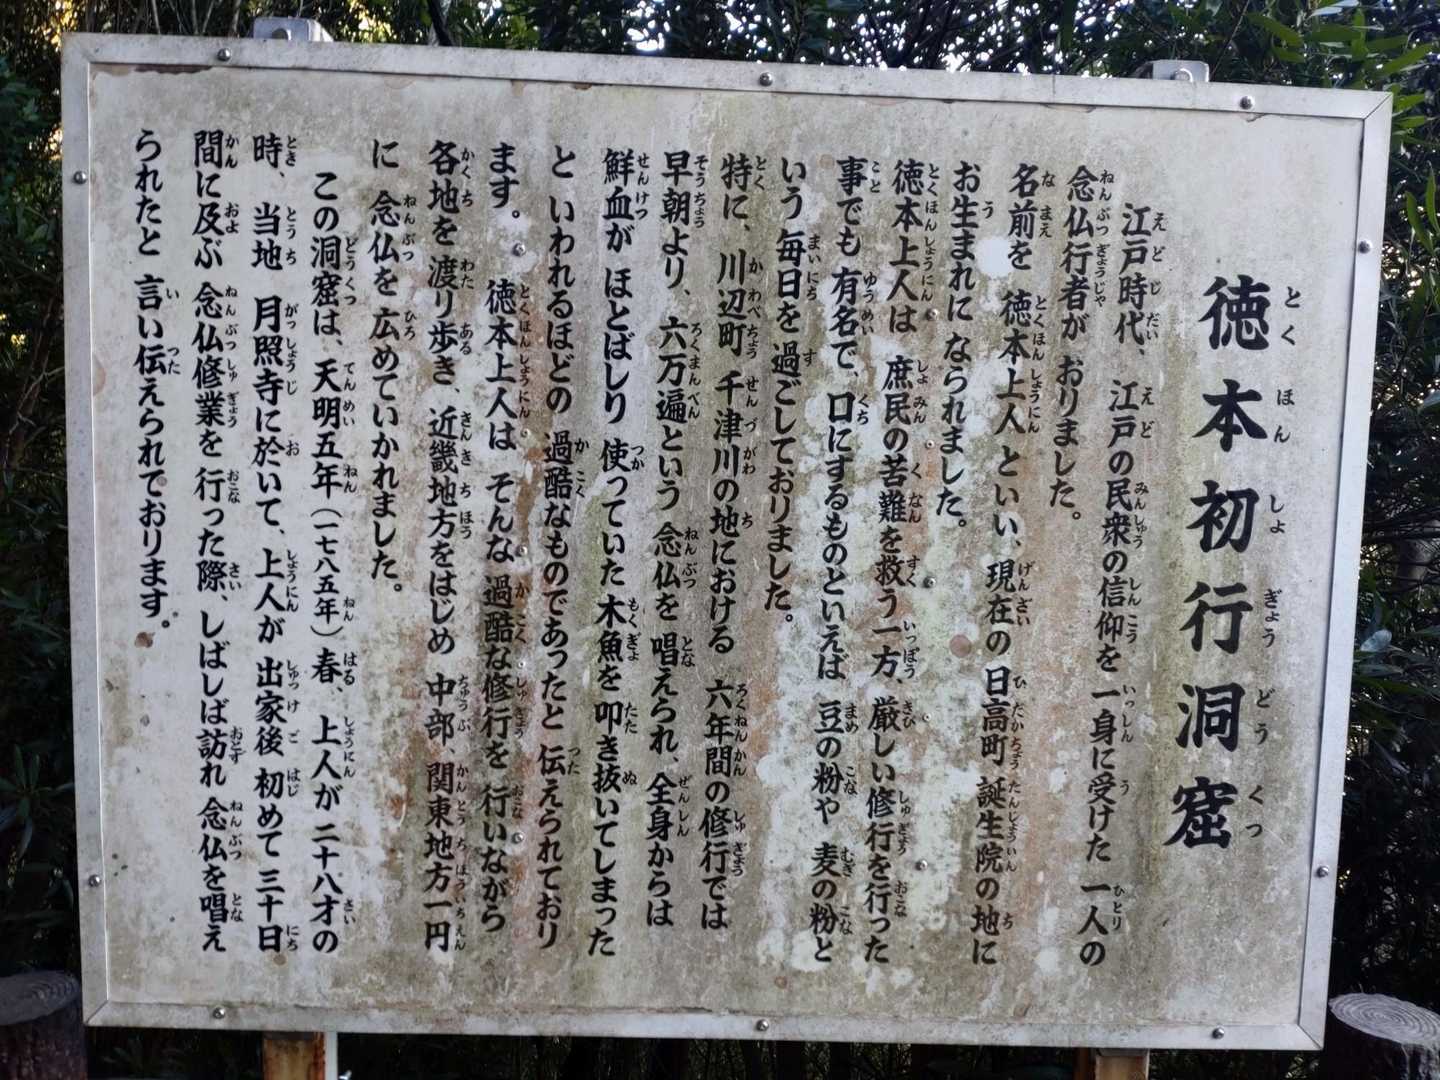 徳本初行洞窟
江戸時代、江戸の民衆の信仰を一身に受けた一人の
念仏行者がおりました。
名前を徳本上人といい、現在の日高町誕生院の地に
お生まれになられました。
徳本上人は庶民の苦難を救う一方、厳しい修行を行った
事でも有名で、口にするものといえば豆の粉や麦の粉と
いう毎日を過ごしておりました。
特に、川辺町千津川の地における六年間の修行では
早朝より、六万遍という念仏を唱えられ、全身からは
鮮血がほとばしり使っていた木魚を叩き抜いてしまった
といわれるほどの過酷なものであったと伝えられており
ます。徳本上人はそんな過酷な修行を行いながら
各地を渡り歩き、近畿地方をはじめ中部、関東地方一円
に念仏を広めていかれました。
この洞窟は、天明五年(一七八五年)春、上人が二十八才の
時、当地月照寺に於いて、上人が出家後初めて三十日
間に及ぶ念仏修業を行った際、しばしば訪れ念仏を唱え
られたと言い伝えられております。